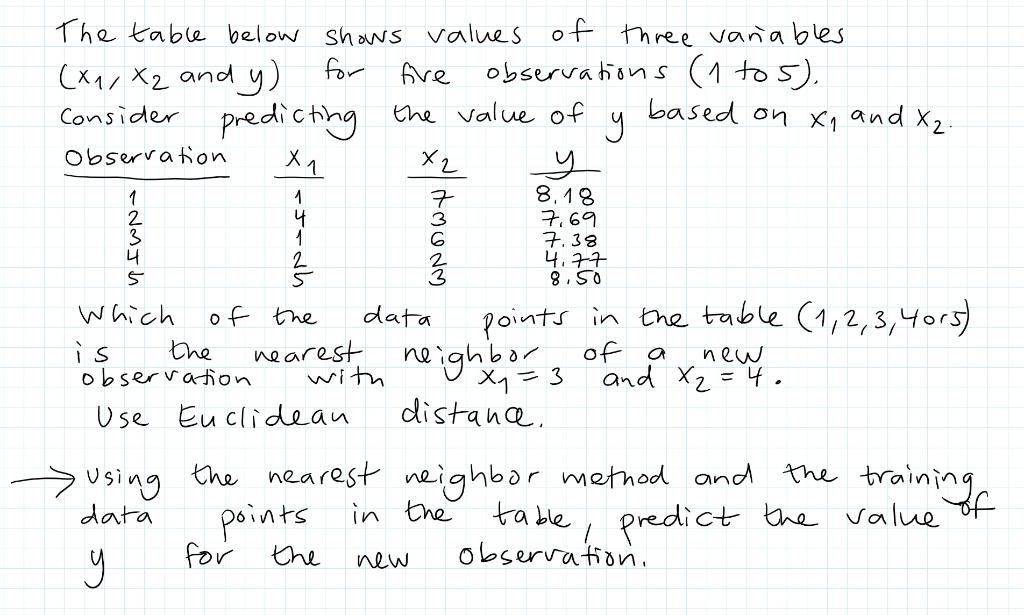 The table below shows values of three variables
(x1, x2 and y) for five observations (1 to 5).
Consider predicting the value of y based on x1 and x2.
Observation x1 x2 y
1 1 7 8.18
2 4 3 7.69
3 1 6 7.38
4 2 2 4.77
5 5 3 8.50
Which of the data points in the table (1,2,3,4 or 5)
is the nearest neighbor of a new
observation with x1 = 3 and x2 = 4.
Use Euclidean distance.
→ Using the nearest neighbor method and the training
data points in the table, predict the value of
y for the new observation.